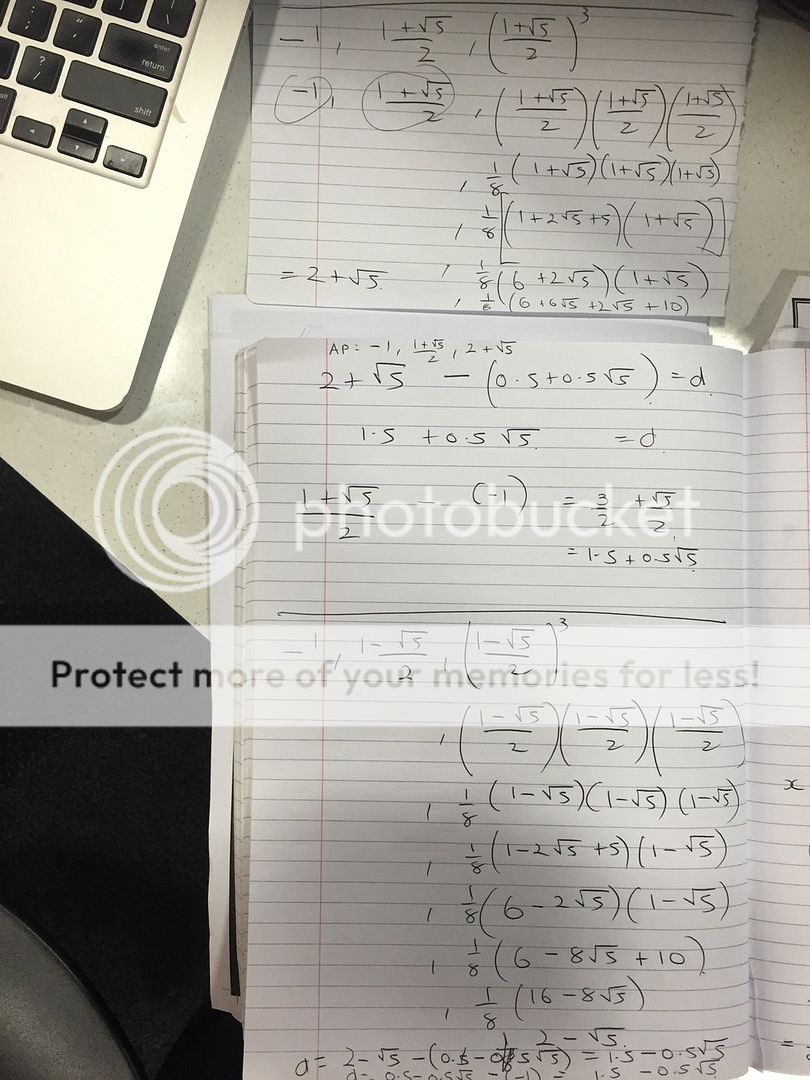 enter
return
shift
alt
?
/
-1, (1+√5)/2, ((1+√5)/2)^3
-1, (1+√5)/2, ((1+√5)/2)((1+√5)/2)((1+√5)/2)
, 1/8 (1+√5)(1+√5)(1+√5)
, 1/8 [(1+2√5+5)(1+√5)]
= 2+√5 , 1/8 (6+2√5)(1+√5)
, 1/8 (6+6√5+2√5+10)
AP: -1, (1+√5)/2, 2+√5
2+√5 - (0.5+0.5√5) = d
1.5 + 0.5√5 = d
(1+√5)/2 - (-1) = 3/2 + √5/2
= 1.5+0.5√5
photobucket
-1, (1-√5)/2, ((1-√5)/2)^3
Protect more of your memories for less!
, ((1-√5)/2)((1-√5)/2)((1-√5)/2)
x
, 1/8 (1-√5)(1-√5)(1-√5)
, 1/8 (1-2√5+5)(1-√5)
, 1/8 (6-2√5)(1-√5)
, 1/8 (6-8√5+10)
, 1/8 (16-8√5)
, 2-√5
d= 2-√5-(0.5-0.5√5) = 1.5-0.5√5
d= 0.5-0.5√5-(-1) = 1.5-0.5√5
=